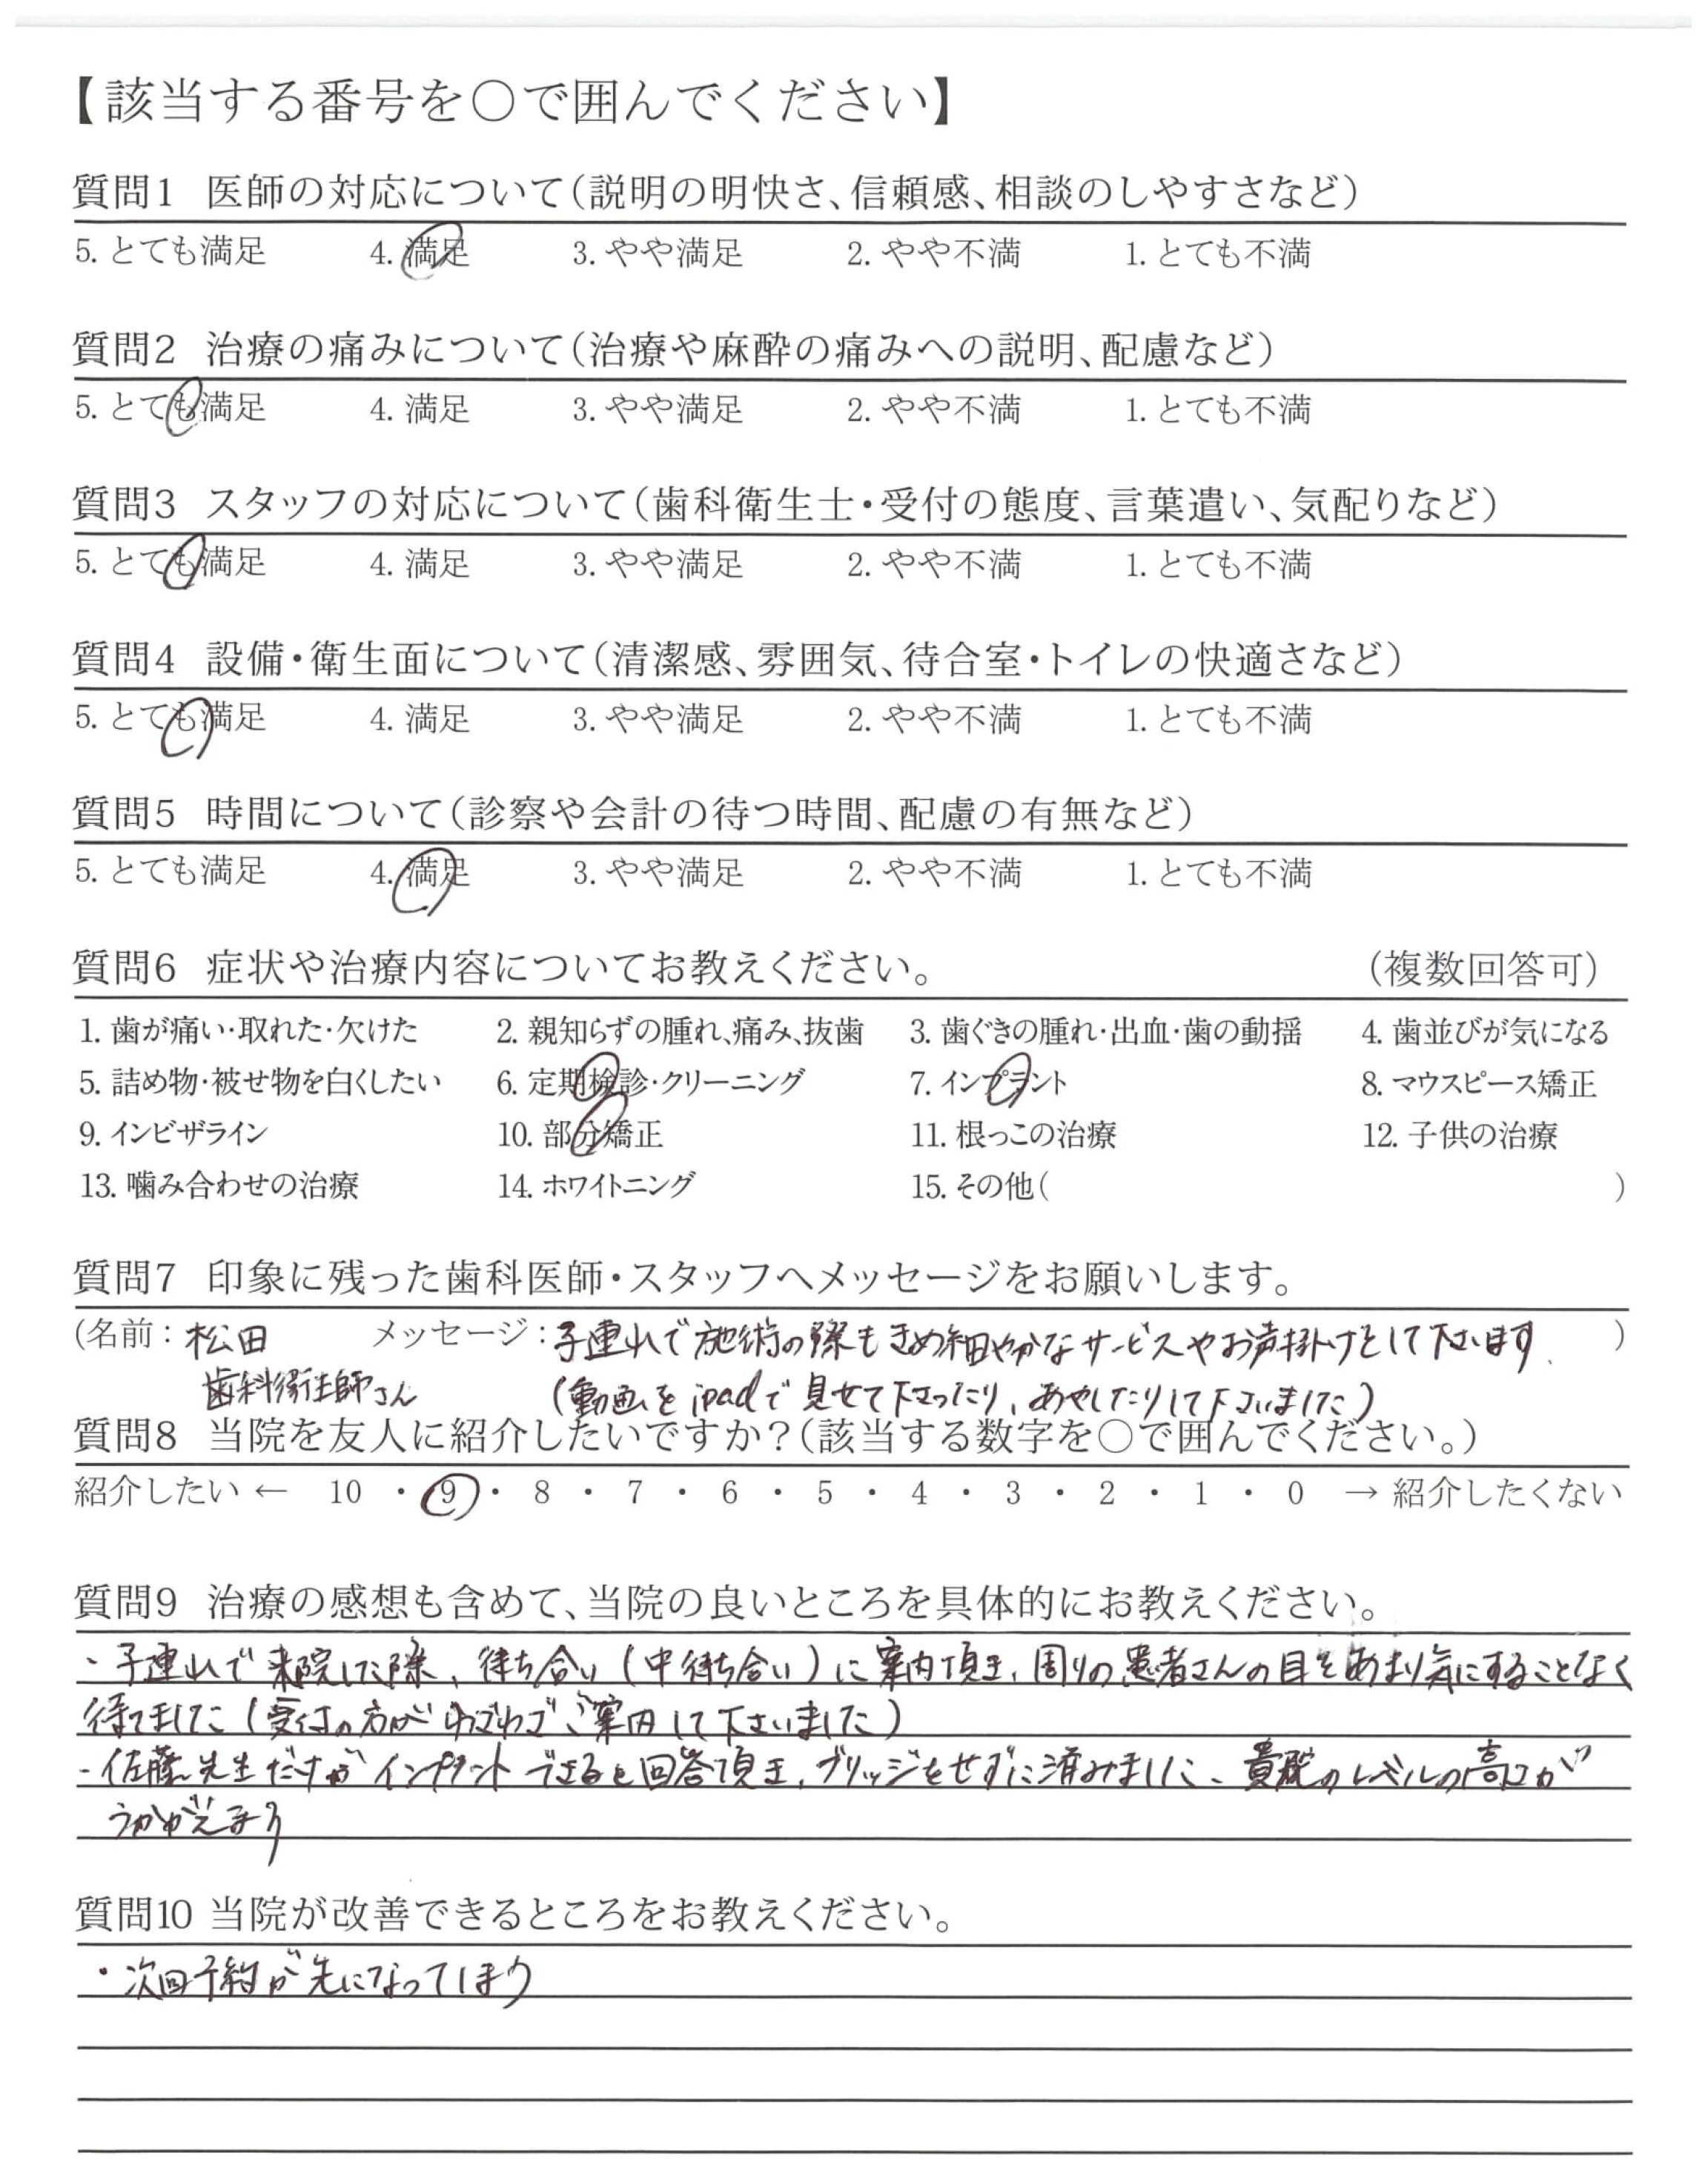 【該当する番号を〇で囲んでください】
質問1 医師の対応について(説明の明快さ、信頼感、相談のしやすさなど)
5. とても満足 4. 満足 3. やや満足 2. やや不満 1. とても不満
質問2 治療の痛みについて(治療や麻酔の痛みへの説明、配慮など)
5. とても満足 4. 満足 3. やや満足 2. やや不満 1. とても不満
質問3 スタッフの対応について(歯科衛生士・受付の態度、言葉遣い、気配りなど)
5. とても満足 4. 満足 3. やや満足 2. やや不満 1. とても不満
質問4 設備・衛生面について(清潔感、雰囲気、待合室・トイレの快適さなど)
5. とても満足 4. 満足 3. やや満足 2. やや不満 1. とても不満
質問5 時間について(診察や会計の待つ時間、配慮の有無など)
5. とても満足 4. 満足 3. やや満足 2. やや不満 1. とても不満
質問6 症状や治療内容についてお教えください。 (複数回答可)
1. 歯が痛い・取れた・欠けた 2. 親知らずの腫れ、痛み、抜歯 3. 歯ぐきの腫れ・出血・歯の動揺 4. 歯並びが気になる
5. 詰め物・被せ物を白くしたい 6. 定期検診・クリーニング 7. インプラント 8. マウスピース矯正
9. インビザライン 10. 部分矯正 11. 根っこの治療 12. 子供の治療
13. 噛み合わせの治療 14. ホワイトニング 15. その他( )
質問7 印象に残った歯科医師・スタッフへメッセージをお願いします。
(名前：松田 メッセージ：子連れで施術の際もきめ細やかなサービスやお声掛けをして下さいます。 )
歯科衛生師さん (動画をipadで見せて下さったり、あやしたりして下さいました)
質問8 当院を友人に紹介したいですか？(該当する数字を〇で囲んでください。)
紹介したい ← 10 ・ 9 ・ 8 ・ 7 ・ 6 ・ 5 ・ 4 ・ 3 ・ 2 ・ 1 ・ 0 → 紹介したくない
質問9 治療の感想も含めて、当院の良いところを具体的にお教えください。
・子連れで来院した際、待ち合い(中待ち合い)に案内頂き、周りの患者さんの目をあまり気にすることなく
待てました(受付の方がわざわざご案内して下さいました)
・佐藤先生だけがインプラントできると回答頂き、ブリッジをせずに済みました、貴院のレベルの高さが
うかがえます
質問10 当院が改善できるところをお教えください。
・次回予約が先になってしまう